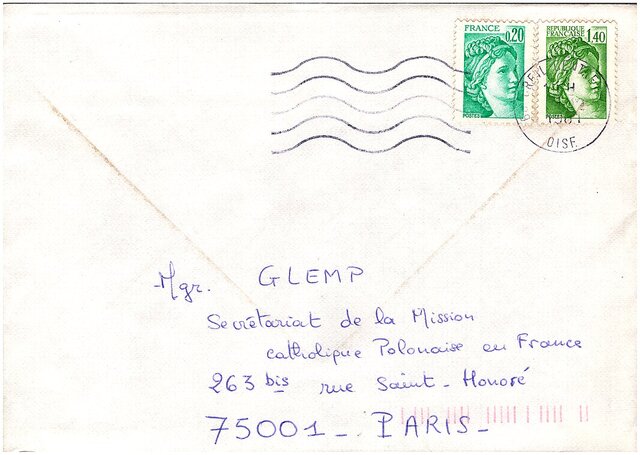 FRANCE 0,20
REPUBLIQUE FRANÇAISE 1,40
POSTES
POSTES
OISE
Mgr. GLEMP
Secrétariat de la Mission
catholique Polonaise en France
263 bis rue Saint-Honoré
75001 - PARIS -